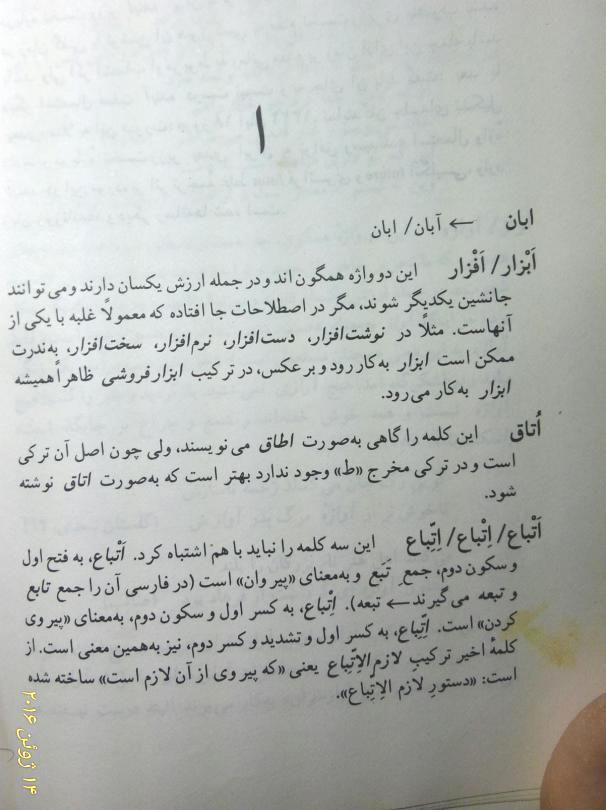 ا
ابان ← آبان/ ابان
اَبْزار/ اَفْزار این دو واژه همگون‌اند و در جمله ارزش یکسان دارند و می‌توانند
جانشین یکدیگر شوند، مگر در اصطلاحات جا افتاده که معمولاً غلبه با یکی از
آنهاست. مثلاً در نوشت‌افزار، دست‌افزار، نرم‌افزار، سخت‌افزار، به‌ندرت
ممکن است ابزار به‌کار رود و برعکس، در ترکیب ابزارفروشی ظاهراً همیشه
ابزار به‌کار می‌رود.
اُتاق این کلمه را گاهی به‌صورت اطاق می‌نویسند، ولی چون اصل آن ترکی
است و در ترکی مخرج «ط» وجود ندارد بهتر است که به‌صورت اتاق نوشته
شود.
اَتْباع/ اِتْباع/ اِتِّباع این سه کلمه را نباید با هم اشتباه کرد. اَتْباع، به فتح اول
و سکون دوم، جمع تَبَع و به‌معنای «پیروان» است (در فارسی آن را جمع تابع
و تبعه می‌گیرند ← تبعه). اِتْباع، به کسر اول و سکون دوم، به‌معنای «پیروی
کردن» است. اِتِّباع، به کسر اول و تشدید و کسر دوم، نیز به‌همین معنی است. از
کلمهٔ اخیر ترکیبِ لازم‌الاِتِّباع یعنی «که پیروی از آن لازم است» ساخته شده
است: «دستورِ لازم الاِتِّباع».
۱۴ ژوئن ۲۰۱۶